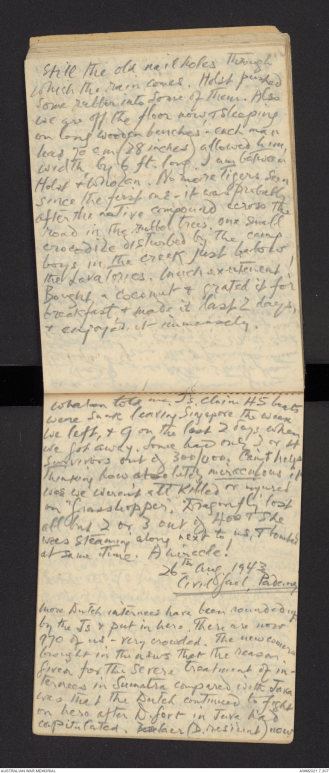 Still the old nail holes through
which the rain comes. Holst pushed
some rubber into some of them. Also
we are off the floor now & sleeping
on long wooden benches - each man
has 70 cm (28 inches) allowed him,
width by 6 ft. long. I am between
Holst & Whelan. No more tigers seen
since the first one - it was probably
after the native compound across the
road in the rubber trees. One small
crocodile disturbed by the camp
boys in the creek just below
the lavatories. Much excitement!
Bought a coconut & grated it for
breakfast & made it last 2 days,
& enjoyed it immensely.
Whelan told me Js. claim 45 boats
were sunk leaving Singapore the week
we left, & 9 on the last 2 days when
we got away. Some had only 3 or 4
survivors out of 300/400. Can't help
thinking how absolutely miraculous it
was we weren't all killed or injured
on "Grasshopper". Dragonfly lost
all but 2 or 3 out of & she
was steaming along next to us, & bombed
at same time. A miracle!
26th Aug. 1943
Civil Jail, Padang
More Dutch internees have been rounded up
by the Js & put in here. There are now
970 of us - very crowded. The newcomers
brought in the news that the reason
given for the severe treatment of in-
ternees in Sumatra compared with Java
was that the Dutch continued to fight
on here after D. fort in Java had
capitulated. (D. resident) now
AUSTRALIAN WAR MEMORIAL